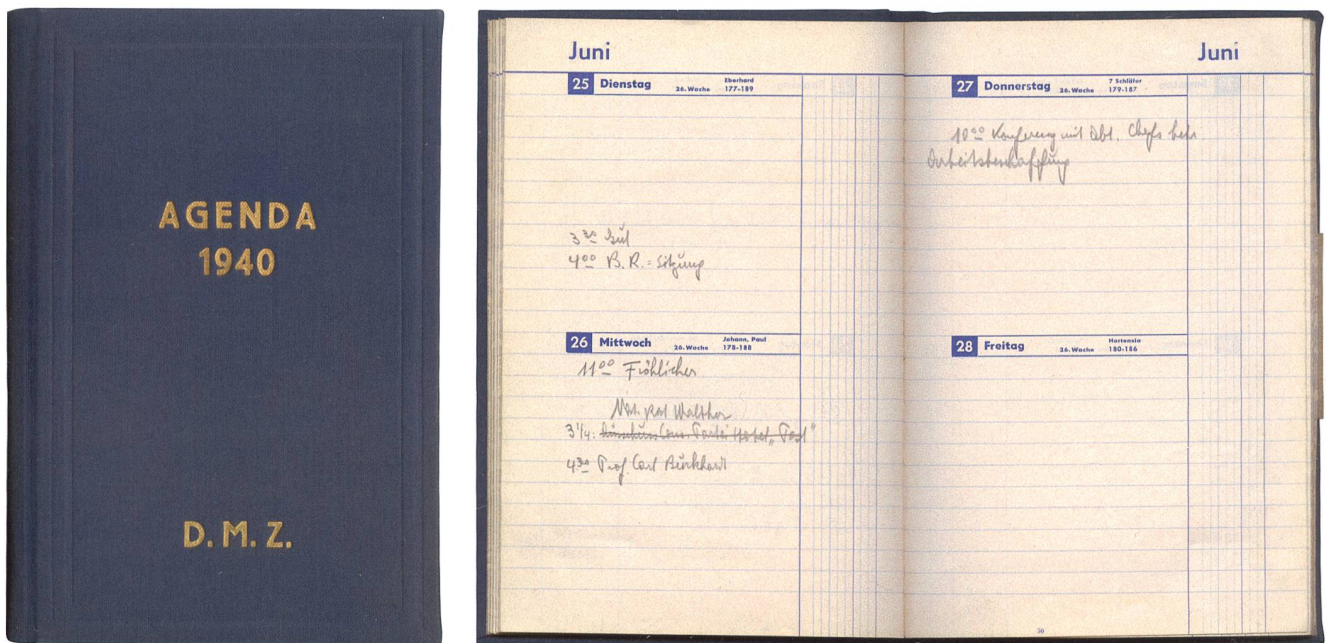 AGENDA
1940
D. M. Z.
Juni
25 Dienstag 26. Woche Eberhard 177-189
3 30
4 00 B. R. = Sitzung
26 Mittwoch 26. Woche Johann, Paul 178-188
11 00 Frölicher
Nat. rat Walther
3 1/4. Hotel „Post"
4 30 Prof. Carl Burckhardt
Juni
27 Donnerstag 26. Woche 7 Schläfer 179-187
10 00 Konferenz mit Abt. Chefs betr.
Arbeitsbeschaffung
28 Freitag 26. Woche Hortensia 180-186